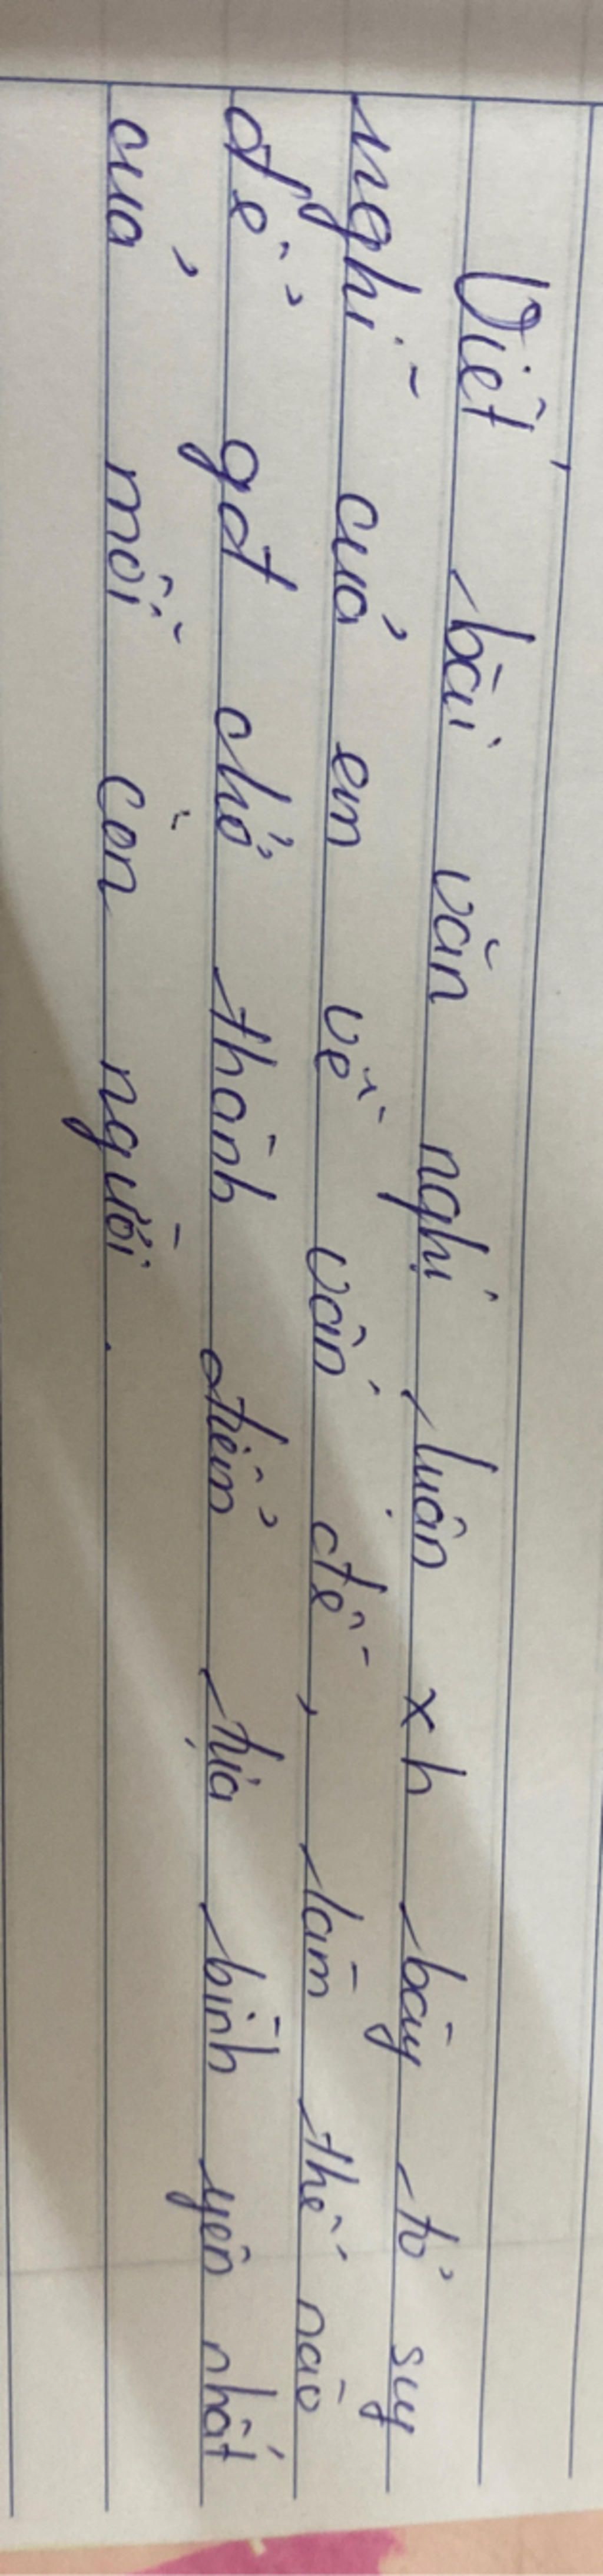 Viết bài văn nghị luận xh bày tỏ suy
nghĩ của em về vấn đề, làm thế nào
để gđ chở thành điểm tựa bình yên nhất
của mỗi còn người.